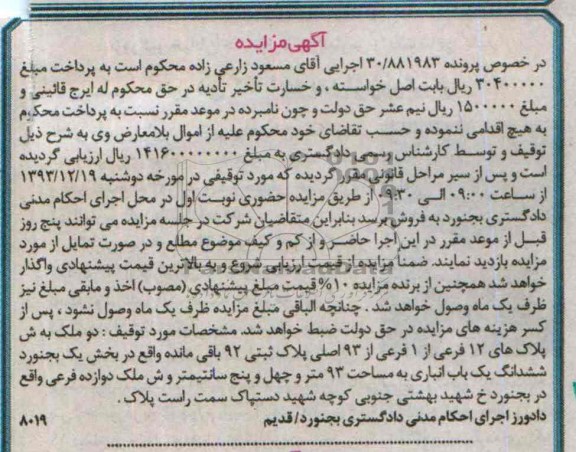 آگهی مزایده
در خصوص پرونده ۳۰/۸۸۱۹۸۳ اجرایی آقای مسعود زارعی زاده محکوم است به پرداخت مبلغ
۳۰۴۰۰۰۰۰ ریال بابت اصل خواسته ، و خسارت تأخیر تأدیه در حق محکوم له ایرج قائینی و
مبلغ ۱۵۰۰۰۰۰ ریال نیم عشر حق دولت و چون نامبرده در موعد مقرر نسبت به پرداخت محکوم
به هیچ اقدامی ننموده و حسب تقاضای خود محکوم علیه از اموال بلامعارض وی به شرح ذیل
توقیف و توسط کارشناس رسمی دادگستری به مبلغ ۱۴۱۶۰۰۰۰۰۰ ریال ارزیابی گردیده
است و پس از سیر مراحل قانونی مقرر گردیده که مورد توقیفی در مورخه دوشنبه ۱۳۹۳/۱۲/۱۹
از ساعت ۰۹:۰۰ الی ۰۹:۳۰ از طریق مزایده حضوری نوبت اول در محل اجرای احکام مدنی
دادگستری بجنورد به فروش برسد بنابراین متقاضیان شرکت در جلسه مزایده می توانند پنج روز
قبل از موعد مقرر در این اجرا حاضر و از کم و کیف موضوع مطلع و در صورت تمایل از مورد
مزایده بازدید نمایند. ضمناً مزایده از قیمت ارزیابی شروع و به بالاترین قیمت پیشنهادی واگذار
خواهد شد همچنین از برنده مزایده ۱۰% قیمت مبلغ پیشنهادی (مصوب) اخذ و مابقی مبلغ نیز
ظرف یک ماه وصول خواهد شد . چنانچه الباقی مبلغ مزایده ظرف یک ماه وصول نشود ، پس از
کسر هزینه های مزایده در حق دولت ضبط خواهد شد. مشخصات مورد توقیف : دو ملک به ش
پلاک های ۱۲ فرعی از ۱ فرعی از ۹۳ اصلی پلاک ثبتی ۹۲ باقی مانده واقع در بخش یک بجنورد
ششدانگ یک باب انباری به مساحت ۹۳ متر و چهل و پنج سانتیمتر و ش ملک دوازده فرعی واقع
در بجنورد خ شهید بهشتی جنوبی کوچه شهید دستپاک سمت راست پلاک .
دادورز اجرای احکام مدنی دادگستری بجنورد/قدیم ۸۰۱۹